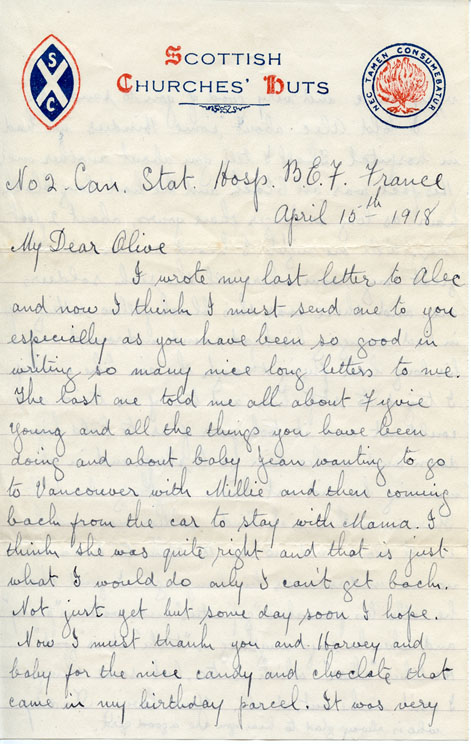 S C
SCOTTISH
CHURCHES' HUTS
NEC TAMEN CONSUMEBATUR
No 2. Can. Stat. Hosp. B.E.F. France
April 15th 1918
My Dear Olive
I wrote my last letter to Alec
and now I think I must send one to you
especially as you have been so good in
writing so many nice long letters to me.
The last one told me all about Fyvie
Young and all the things you have been
doing and about baby Jean wanting to go
to Vancouver with Millie and then coming
back from the car to stay with Mama. I
think she was quite right and that is just
what I would do only I can't get back.
Not just yet but some day soon I hope.
Now I must thank you and Harvey and
baby for the nice candy and choclate that
came in my birthday parcel. It was very